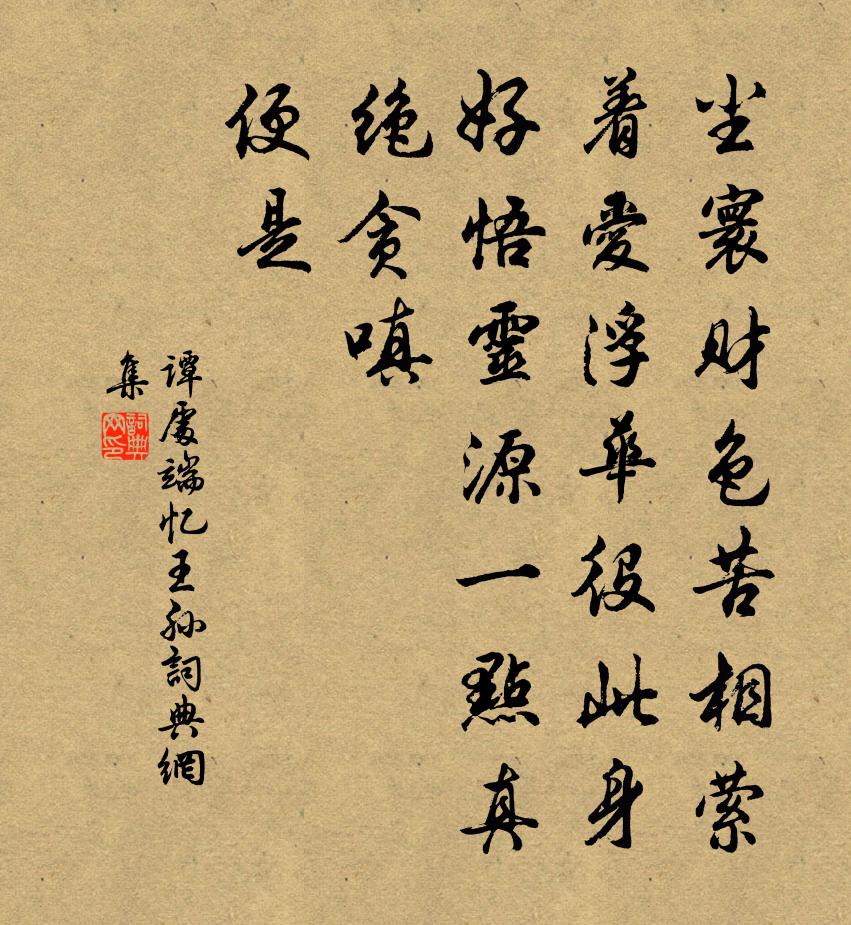 尘寰财色苦相萦
着爱浮华役此身
好悟靈源一點真
绝贪嗔
便是
谭處端忆王孙詞典網
集
詞典
网印